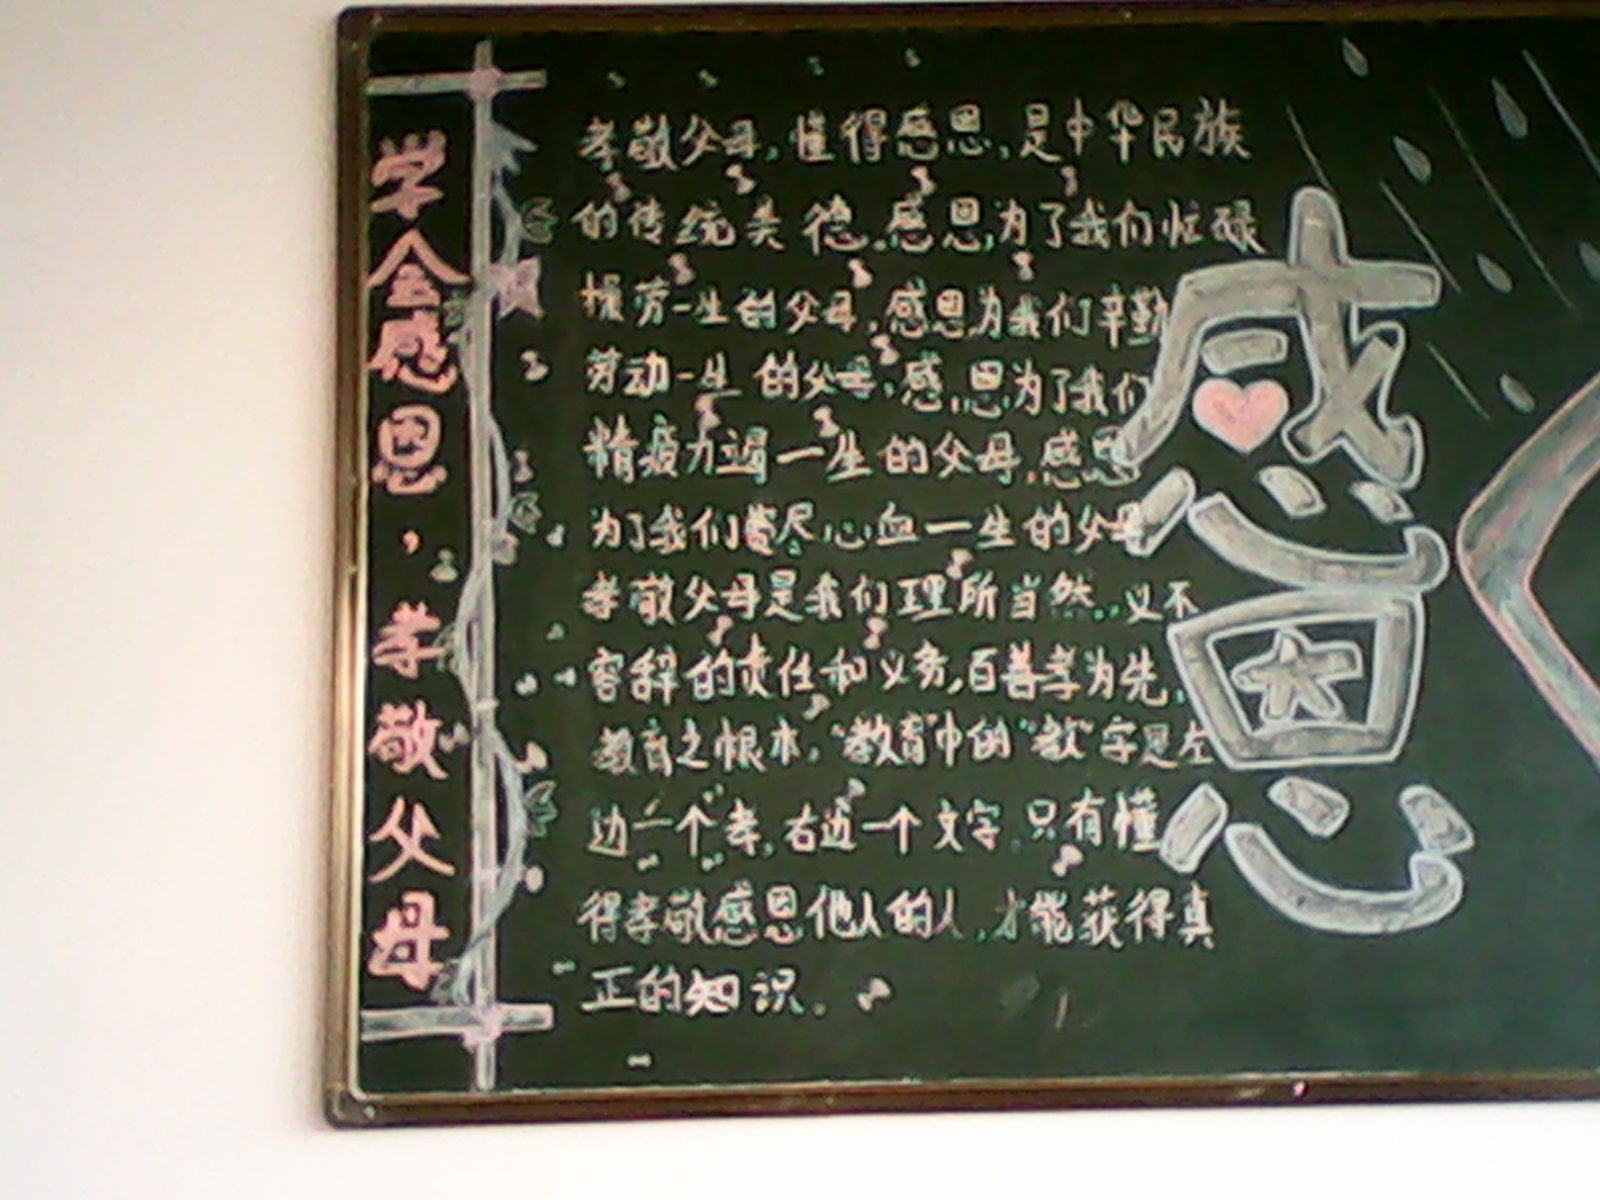 学会感恩，孝敬父母
孝敬父母,懂得感恩,是中华民族
的传统美德。感恩,为了我们忙碌
操劳一生的父母,感恩为我们辛勤
劳动一生的父母,感恩为了我们
精疲力竭一生的父母,感恩
为了我们费尽心血一生的父母
孝敬父母是我们理所当然。义不
容辞的责任和义务,百善孝为先,
教育之根本,"教育"中的"教"字是左
边一个孝,右边一个文字,只有懂
得孝敬感恩他人的人,才能获得真
正的知识。
感恩